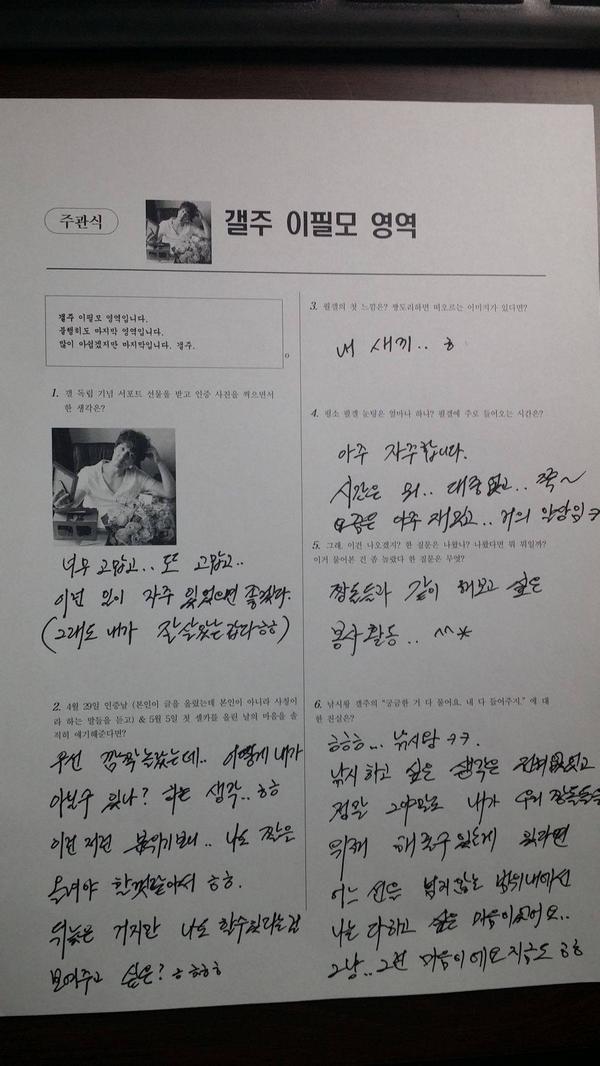 주관식
갤주 이필모 영역
갤주 이필모 영역입니다.
불행히도 마지막 영역입니다.
많이 아쉽겠지만 마지막입니다. 갤주.
1. 갤 독립 기념 서포트 선물을 받고 인증 사진을 찍으면서
한 생각은?
너무 고맙고.. 또 고맙고..
이런 일이 자주 있었으면 좋겠다.
(그래도 내가 잘살았는갑다ㅎㅎ)
2. 4월 29일 인증날 (본인이 글을 올렸는데 본인이 아니라 사칭이
라 하는 말들을 듣고) & 5월 5일 첫 셀카를 올린 날의 마음을 솔
직히 얘기해준다면?
우선 깜짝놀랐는데.. 어떻게 내가
아닐수 있나? 하는 생각.. ㅎㅎ
이런저런 분위기보니.. 나도 짤은
올려야 할껏같아서 ㅎㅎ.
뒤늦은 거지만 나도 할수있다는걸
보여주고 싶은? ㅎㅎㅎㅎ
3. 필갤의 첫 느낌은? 짱도리하면 떠오르는 이미지가 있다면?
내 새끼.. ㅎ
4. 평소 필갤 눈팅은 얼마나 하나? 필갤에 주로 들어오는 시간은?
아주 자주합니다.
시간은 뭐.. 대중없고.. 쭉~
요즘은 아주 재밌고.. 거의
5. 그래, 이건 나오겠지? 한 질문은 나왔나? 나왔다면 뭐 뭐일까?
이거 물어본 긴 좀 놀랐다 한 질문은 무엇?
짱돌들과 같이 해보고 싶은
봉사활동.. ^^*
6. 낚시왕 갤주의 "궁금한 거 다 물어요. 내 다 들어주지." 에 대
한 진실은?
ㅎㅎㅎ... 낚시왕 ㅋㅋ.
낚시하고 싶은 생각은 전혀없었고
정말 그야말로 내가 우리 짱돌들을
위해 해줄수있는게 있다면
어느 선을 넘지않는 범위내에선
나는 다하고 싶은 마음이었어요..
그냥.. 그런 마음이에요 지금도 ㅎㅎ